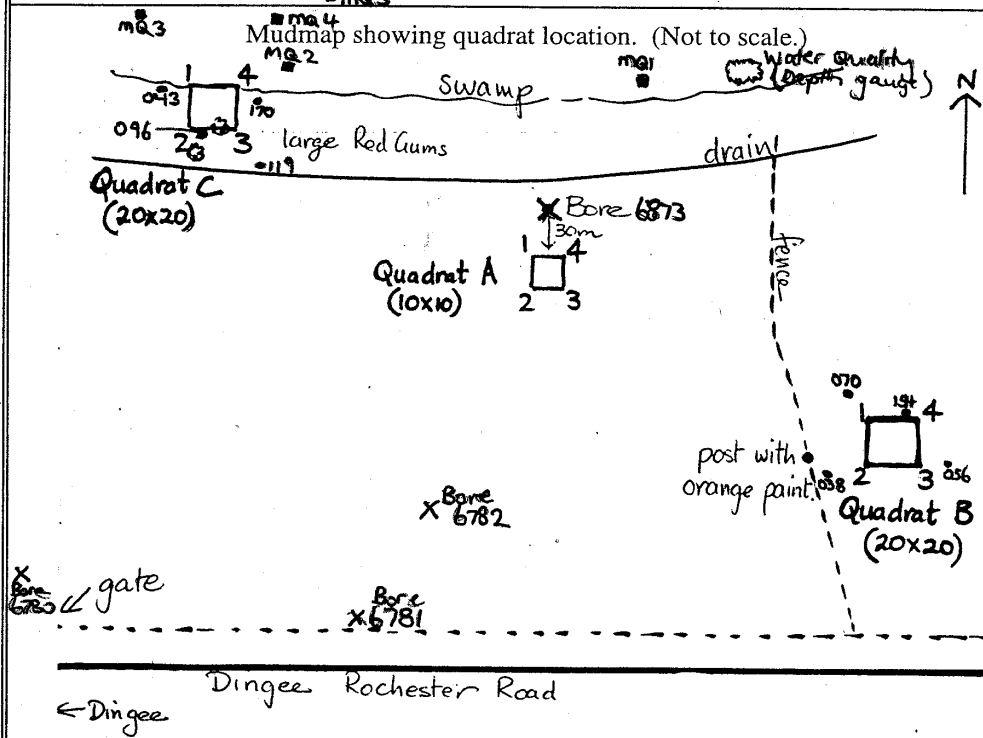 MQ5
MQ3
MQ4
Mudmap showing quadrat location. (Not to scale.)
MQ2
MQ1
Water Quality
(Depth gauge)
N
1 4
swamp
043
170
096
2 3
large Red Gums
119
drain
Quadrat C
(20x20)
Bore 6873
30m
fence
1 4
Quadrat A
(10x10)
2 3
070
1 4
post with
orange paint.
038
2 3
056
Quadrat B
(20x20)
Bore
6782
gate
Bore
6780
Bore
6781
Dingee Rochester Road
←Dingee